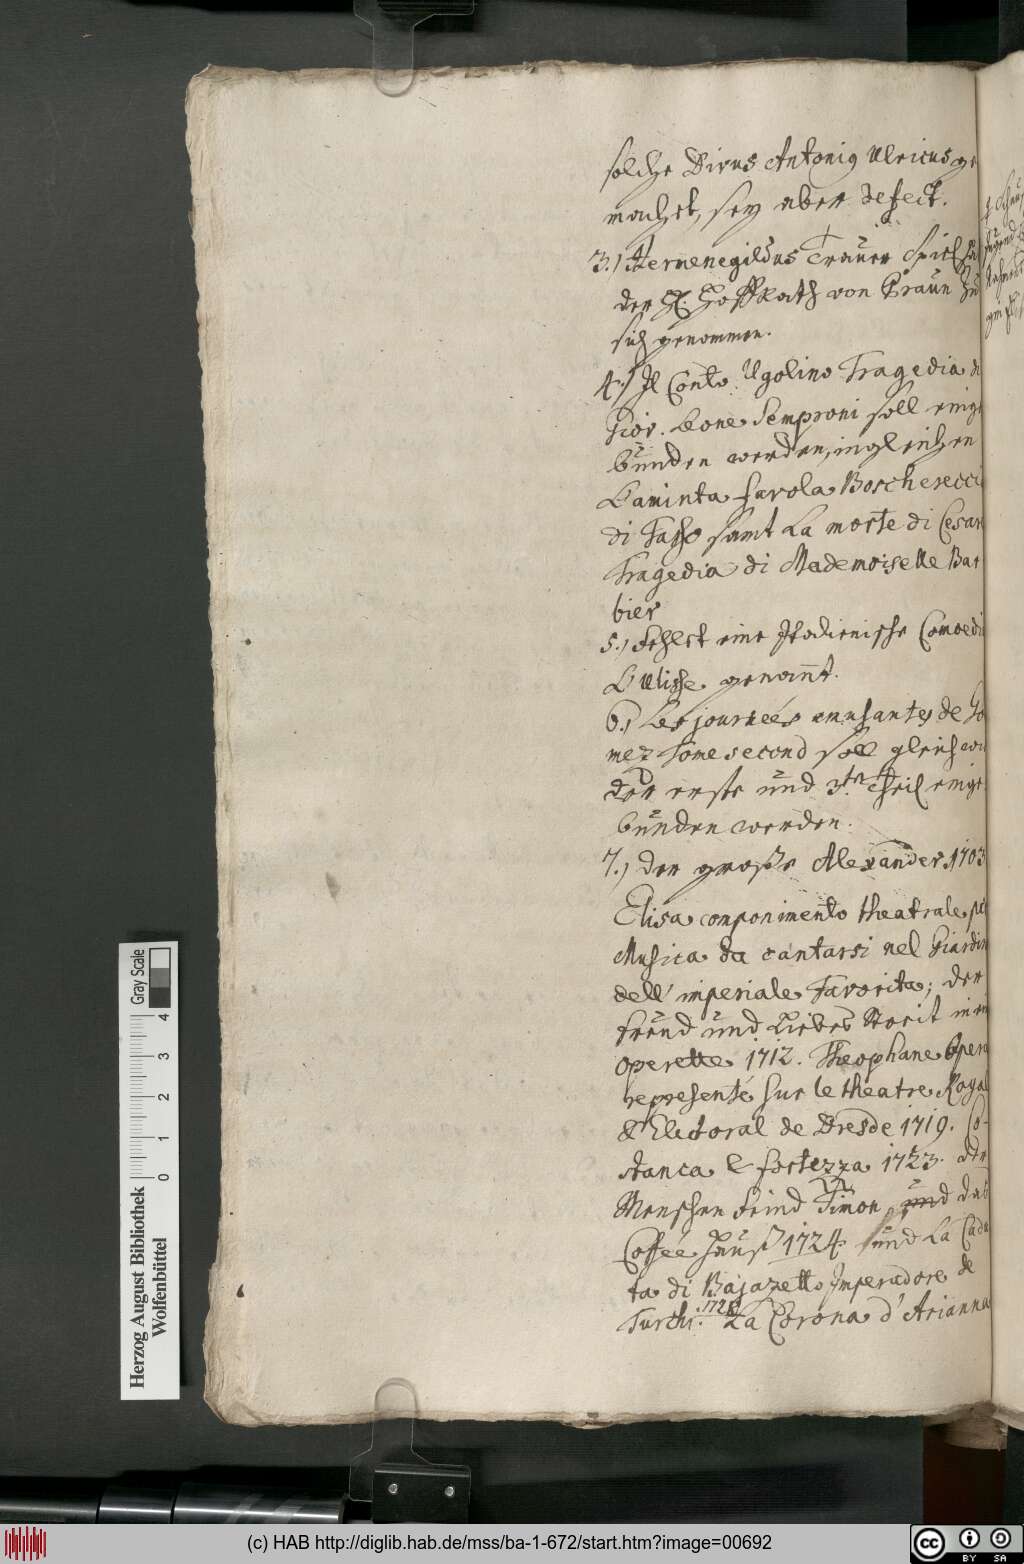 solche Divus Antonig Ulricus ge
machet, sey aber defect.
3.) Hermenegildus Trauer Spiel
der H. Hoffrath von Praun zu
sich genommen.
4.) Il Conto Ugolino Tragedia di
Giov. Leone Semproni soll einge
bunden werden, ingleichen
L'Aminta favola Boscherecci
di Tasso samt La morte di Cesare
Tragedia di Mademoiselle Bar
bier
5.) Fehlet eine Italienische Comoedi
L'Ulisse genannt.
6.) Les journeés amusantes de Go
mez Tome second soll gleich wie
der erste und 3.ten Theil einge
bunden werden.
7.) der große Alexander 1703
Elisa componimento theatrale per
Musica da cantarsi nel Giardin
dell' imperiale Favorita; der
freud und Liebes Streit in ein
operette 1712. Theophane Opera
representé sur le theatre Royal
& Electoral de Dresde 1719. Co-
stanca e fortezza 1723. der
Menschen Feind Timon und das
Coffée Hauß 1724 und La Cadu
ta di Bajazetto Imperadore de
Turchi. 1728 La Corona d'Arianna
Gray Scale
0 1 2 3 4
Herzog August Bibliothek
Wolfenbüttel
(c) HAB http://diglib.hab.de/mss/ba-1-672/start.htm?image=00692
cc BY SA